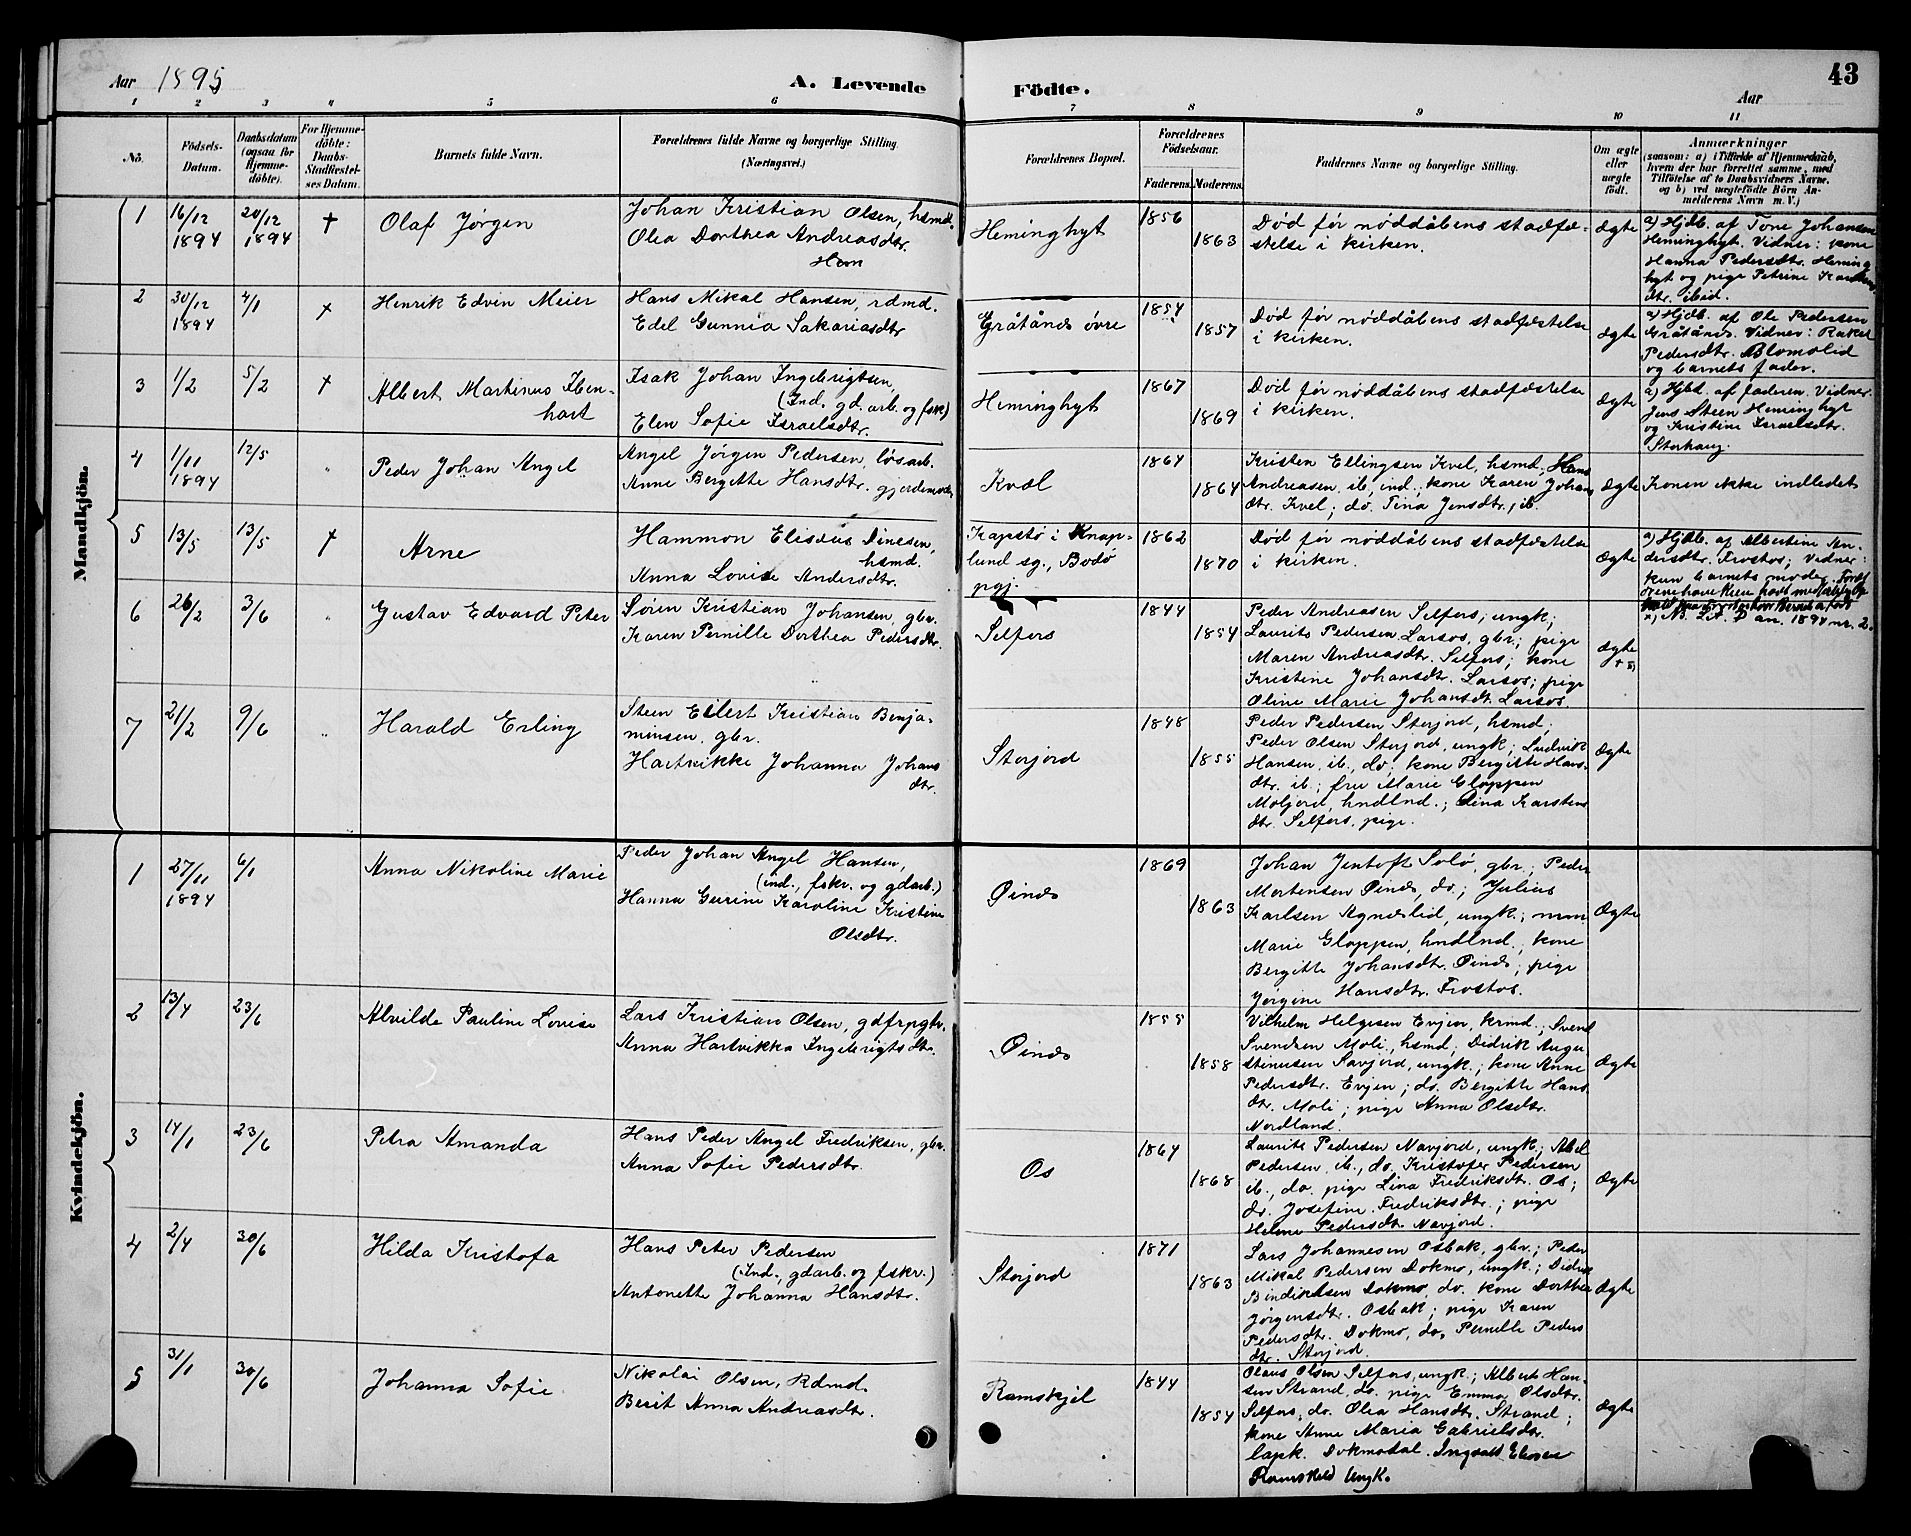 Aar 1895
A. Levende Födte.
43
Aar
1 2 3 4 5 6 7 8 9 10 11
No.
Födsels-Datum.
Daabsdatum (ogsaa for Hjemme-döbte).
For Hjemme-döbte: Daabs-Stadfæstel-ses Datum.
Barnets fulde Navn.
Forældrenes fulde Navne og borgerlige Stilling. (Næringsvei.)
Forældrenes Bopæl.
Forældrenes Födselsaar.
Faderens. Moderens.
Faddernes Navne og borgerlige Stilling.
Om ægte eller uægte födt.
Anmærkninger
(saasom: a) i Tilfælde af Hjemmedaab,
hvem der har forrettet samme, med
Tilföielse af to Daabsvidners Navne,
og b) ved uægtefödte Börn An-
melderens Navn m. V.)
Mandkjön.
1 16/12 1894 20/12 1894 † Olaf Jørgen
Johan Kristian Olsen, hsmd.
Olea Dorthea Andreasdtr.
Hem
Heminghyt 1856 1863
Død før nøddåbens stadfæ-
stelse i kirken.
ægte
a) Hjdb. af Tone Johansen
Heminghyt. Vidner: kone
Hanna Pedersdtr. Heming
hyt og pige Petrine Karlsen
dtr. ibid.
2 30/12 1894 4/1 † Henrik Edvin Meier
Hans Mikal Hansen, rdmd.
Edel Gunnia Sakariasdtr
Gråtånes øvre 1854 1857
Død før nøddåbens stadfæstelse
i kirken.
ægte
a) Hjdb. af Ole Pedersen
Gråtånes. Vidner: Rakel
Pedersdtr. Blomolid
og barnets fader.
3 1/2 5/2 † Albert Martinus Iben-
hart
Isak Johan Ingebrigtsen,
(Ind. gd. arb. og fsk)
Elen Sofie Israelsdtr.
Heminghyt 1867 1869
Død før nøddåbens stadfæstelse
i kirken.
ægte
a) Hjdb. af faderen. Vidner
Jens Steen Heminghyt
og Kristine Israelsdtr.
Storhaug.
4 1/11 1894 12/5 " Peder Johan Angel
Angel Jörgen Pedersen, løsarb.
Anne Bergitte Hansdtr. gjordemoder
Kvæl 1864 1864
Kristen Ellingsen Kvel, hsmd., Hans
Andreasen, ib, ind.; kone Karen Johans
dtr. Kvel; do. Tina Jensdtr., ib.
ægte
Konen ikke indledet
5 13/5 13/5 † Arne
Hammon Elisæus Dinesen,
hsmd.
Anna Lovise Andersdtr.
Kapstø i Knap-
lund sg., Bodø
pgj. 1862 1870
Død før nøddåbens stadfæstelse
i kirken.
ægte
a) Hjdb. af Albertine An-
dersdtr. Frostos; Vidner:
kun barnets moder.
x) No. Lit. D an. 1894 nr. 2.
6 26/2 3/6 " Gustav Edvard Peter
Sören Kristian Johansen, gbr.
Karen Pernille Dorthea Pedersdtr.
Selfors 1844 1854
Peder Andreasen Selfors, ungk;
Laurits Pedersen Larsos, gbr.; pige
Maren Andreasdtr. Selfors; kone
Kristine Johansdtr. Larsos; pige
Oline Marie Johansdtr. Larsos.
ægte
7 21/2 9/6 " Harald Erling
Steen Eilert Kristian Benja-
minsen, gbr.
Hartvikke Johanna Johans
dtr.
Storjord 1848 1855
Peder Pedersen Storjord, hsmd;
Peder Olsen Storjord, ungk; Ludvik
Hansen, ib., do; kone Bergitte Hans-
dtr. ib.; fru Marie Gloppen
Moljord, hndlnd.; Lina Karstens
dtr. Selfors, pige.
ægte
Kvindekjön.
1 27/11 1894 6/1 Anna Nikoline Marie
Peder Johan Angel Hansen,
(ind., fskr. og gdarb.)
Hanna Gurine Karoline Kristine
Olsdtr.
Øines 1869 1863
Johan Jentoft Solö, gbr; Peder
Mortensen Øines, do.; Julius
Karlsen Agneslid, ungk.;
Marie Gloppen, hndlnd., kone
Bergitte Johansdtr. Øines; pige
Jørgine Hansdtr. Frostos.
Ægte
2 13/4 23/6 Alvilde Pauline Lovise
Lars Kristian Olsen, gdfrpgtr.
Anna Hartvikka Ingebrigtsdtr.
Øines 1855 1858
Vilhelm Helgesen Evjen, krmd; Svend
Svendsen Moli, hsmd; Didrik Augu-
stinussen Savjord, ungk.; kone Anne
Pedersdtr. Evjen; do. Bergitte Hans
dtr. Moli; pige Anna Olsdtr.
Nordland.
ægte
3 14/1 23/6 Petra Amanda
Hans Peder Angel Fredriksen, gbr.
Anna Sofie Pedersdtr.
Os 1864 1868
Laurits Pedersen Navjord, ungk.; Abel
Pedersen, ib., do. Kristofer Pedersen
ib., do. pige Lina Fredriksdtr. Os;
do. Josefine Fredriksdtr.; pige
Helene Pedersdtr. Navjord.
ægte
4 2/4 30/6 Hilda Kristofa
Hans Peter Pedersen
(Ind., gdarb. og fskr.)
Antonette Johanna Hansdtr.
Storjord 1871 1863
Lars Johannesen Osbak, gbr.; Peder
Mikal Pedersen Dokmo, ungk.; Didrik
Bendiktsen Dokmo, do. kone Dorthea
Jörgensdtr. Osbak; pige Karen
Pedersdtr. Dokmo, do, Pernille Peders
dtr. Storjord.
ægte
5 31/1 30/6 Johanna Sofie
Nikolai Olsen, Rdmd.
Berit Anna Andreasdtr.
Ramskjel 1844 1854
Olaus Olsen Selfors, ungk.; Albert Han-
sen Strand, do. pige Emma Olsdtr.
Selfors, do. Olea Hansdtr. Strand;
kone Anne Maria Gabrielsdtr.
lapk. Dokmodal.
Ramskjeld Ungk.
ægte